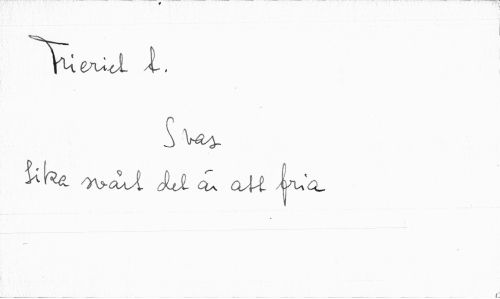 Frieriet t.
Svar
Lika svårt det är att fria